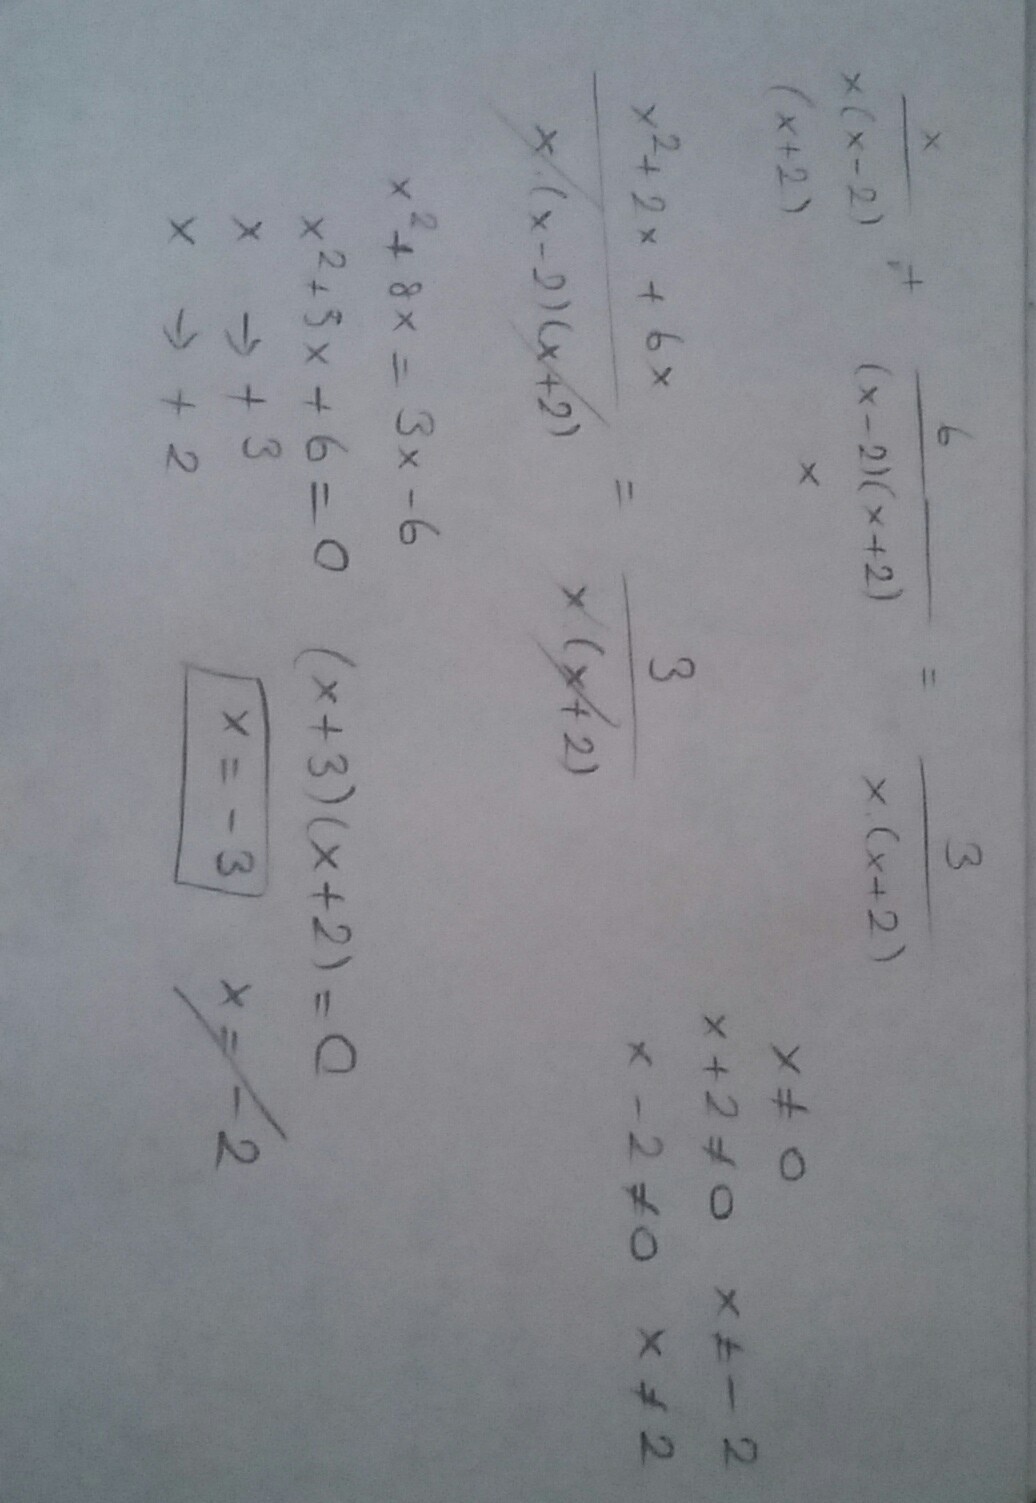 x/x(x-2) + 6/(x-2)(x+2) = 3/x.(x+2)
(x+2) x
x ≠ 0
x+2 ≠ 0 x ≠ -2
x - 2 ≠ 0 x ≠ 2
x²+2x + 6x/x.(x-2)(x+2) = 3/x.(x+2)
x²+8x = 3x-6
x²+5x+6=0 (x+3)(x+2)=0
x → +3
x → +2
x = -3 x = -2